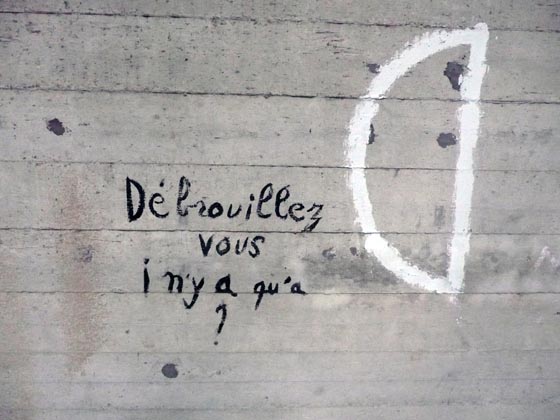 Débrouillez
vous
i n'y a qu'a
?